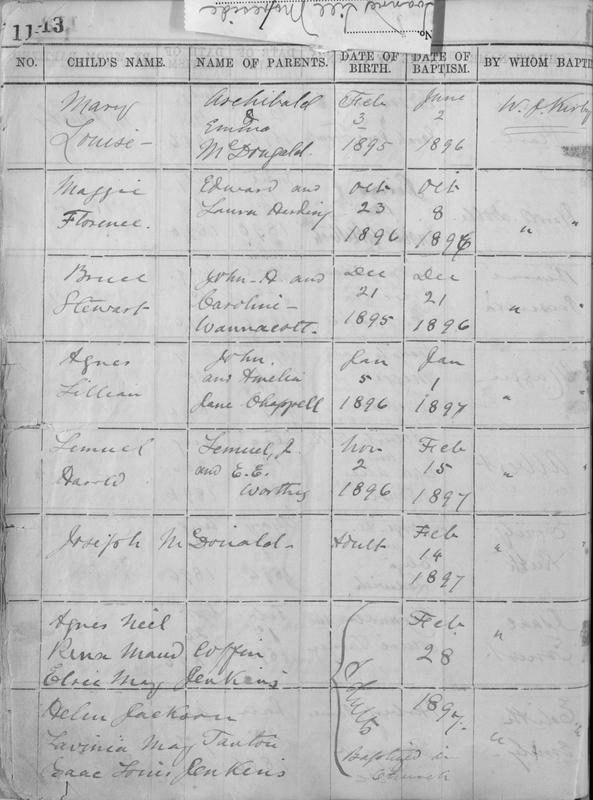 No.
11-13
NO. CHILD'S NAME. NAME OF PARENTS. DATE OF BIRTH. DATE OF BAPTISM. BY WHOM BAPTI
Mary Archibald Feb June W. J. Kirby
& 3 2
Louise - Emma
McDougald. 1895 1896
Maggie Edward and Oct Oct
Florence. Laura 23 8
1896 1896 " "
Bruce John A. and Dec Dec
Stewart Caroline - 21 21
Wannacott. 1895 1896 " "
Agnes John. Jan Jan
Lillian and Amelia 5 1
Jane Chappell 1896 1897 " "
Lemuel Lemuel, J. Nov Feb
Harold and E. E. 2 15
Worthy 1896 1897 " "
Joseph McDonald - Adult Feb
14
1897 " "
Agnes Neil Feb "
Rena Maud Coffin 28
Elsie May Jenkins
Helen Jackson Adults 1897.
Lavinia May Tanton Baptized in " "
Isaac Louis Jenkins Church